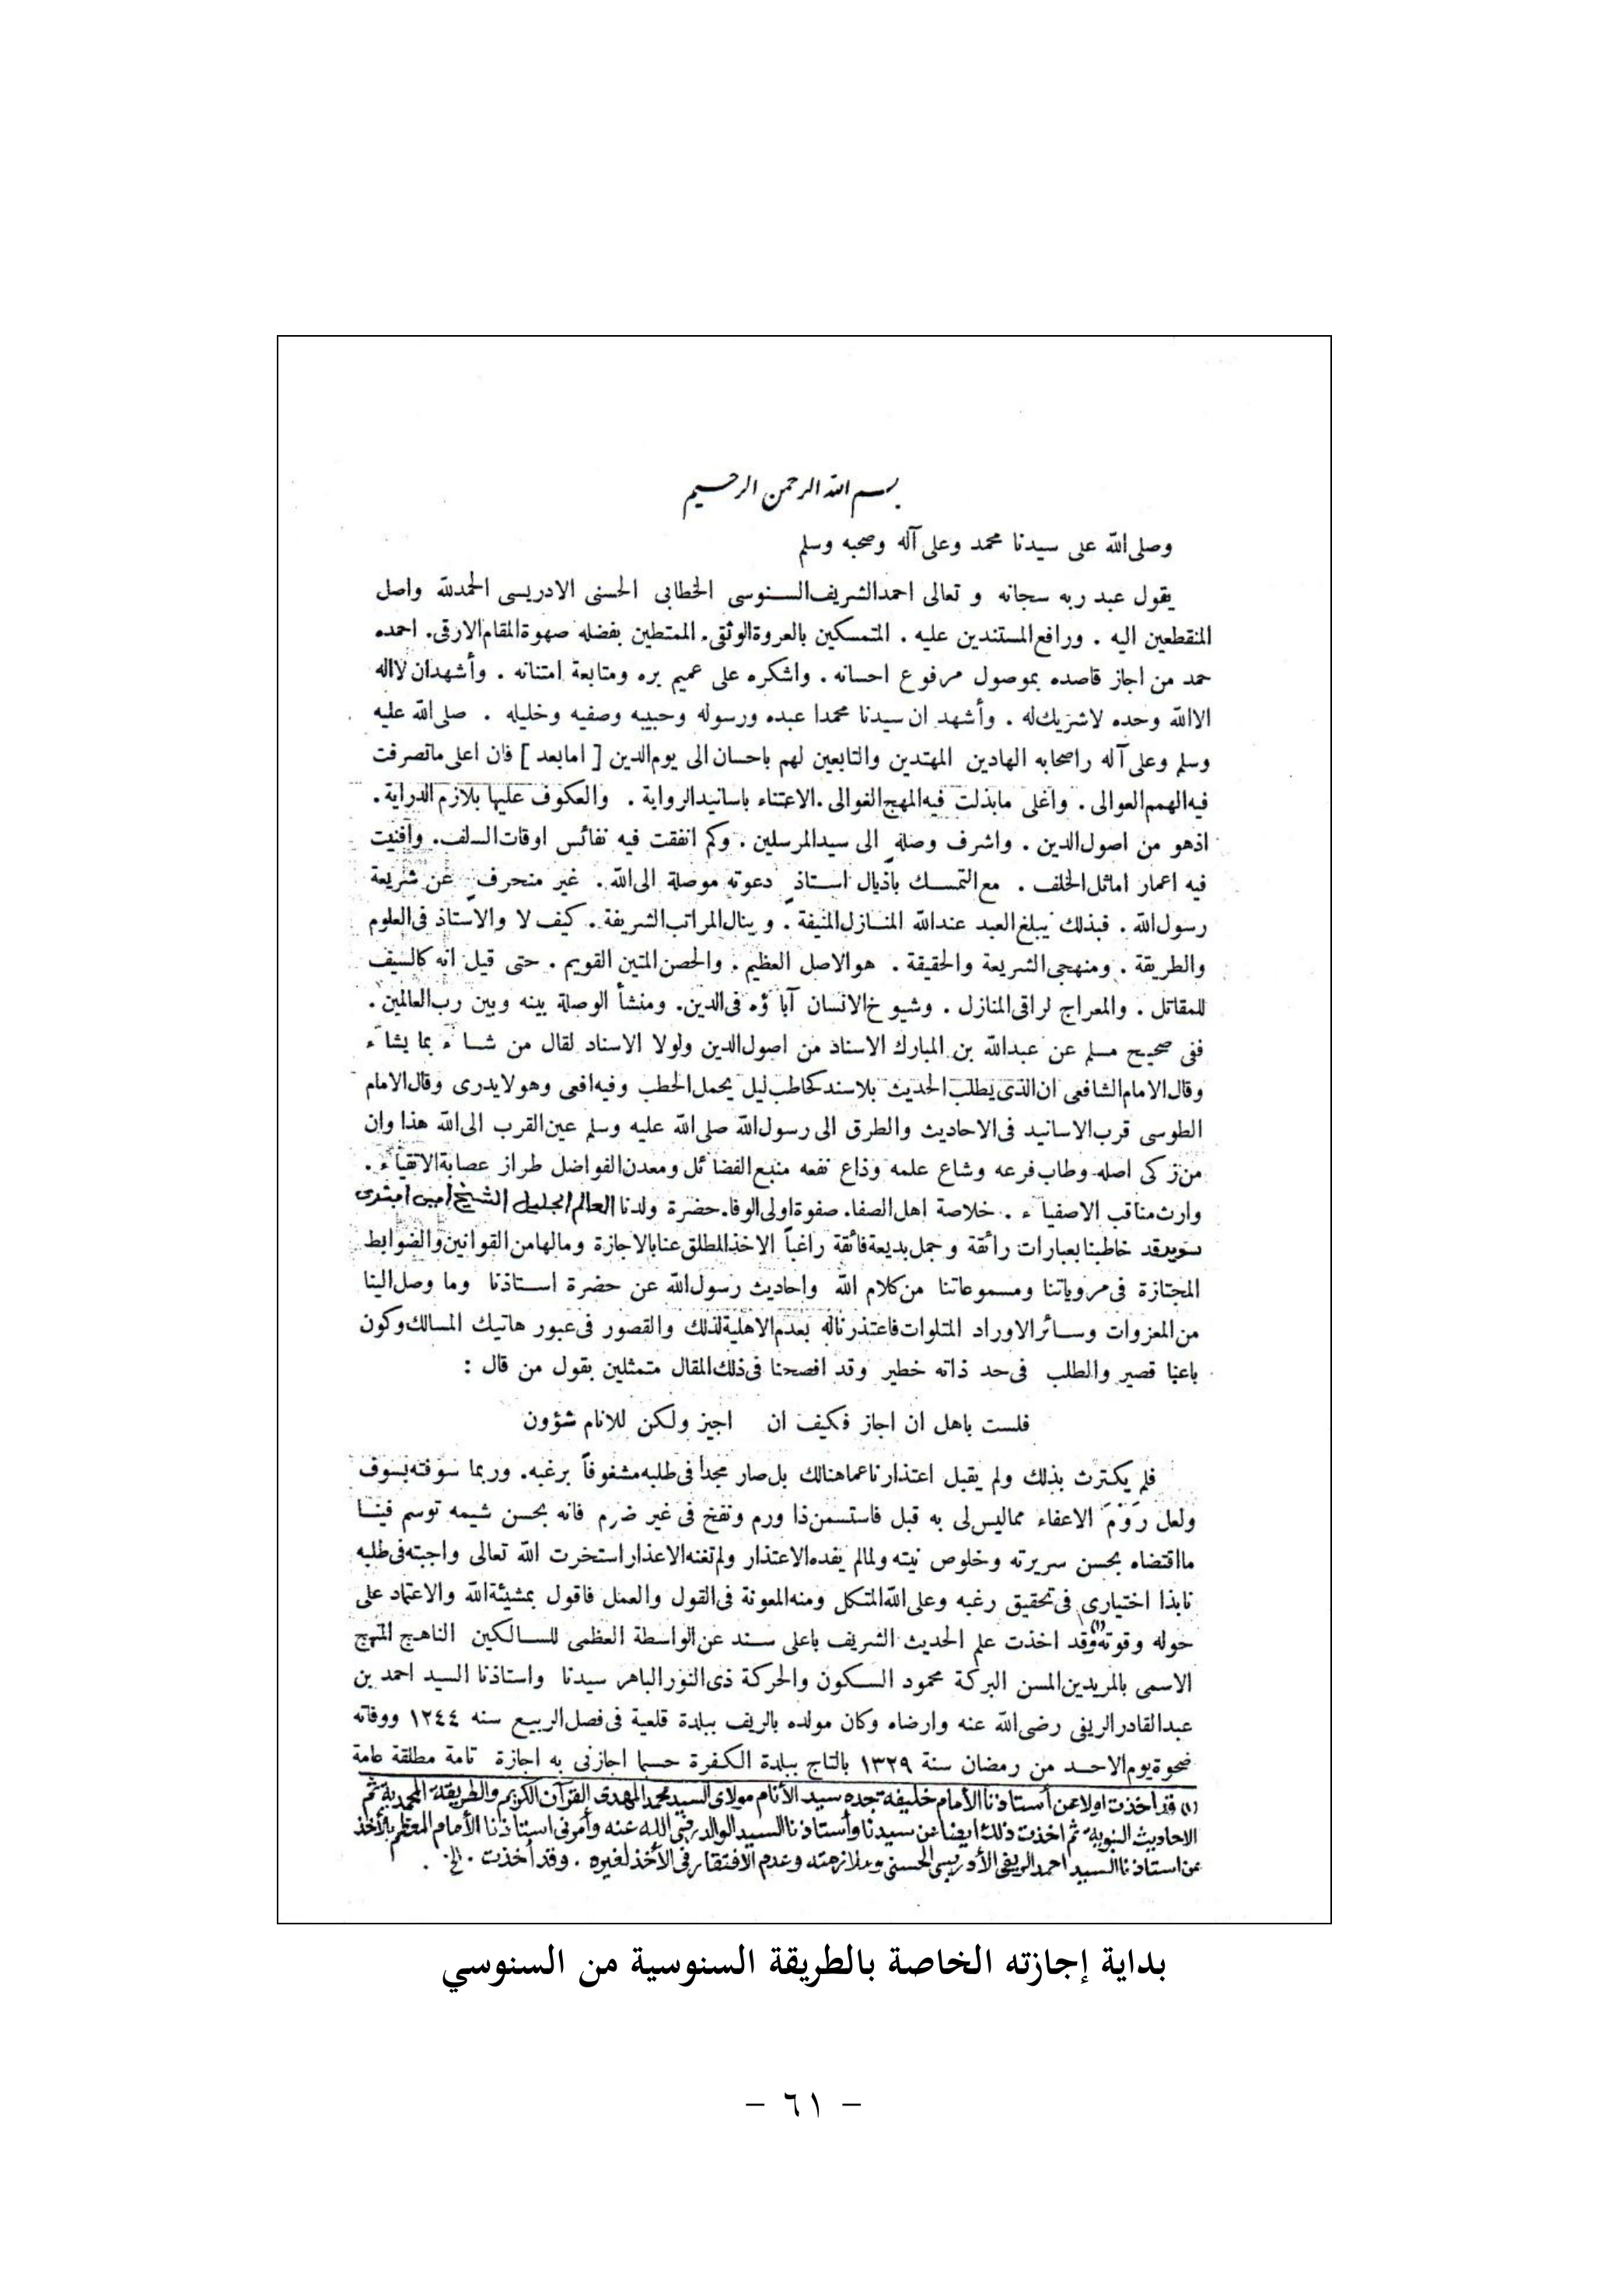 بسم الله الرحمن الرحيم
وصلى الله على سيدنا محمد وعلى آله وصحبه وسلم
يقول عبد ربه سبحانه و تعالى احمد الشريف السنوسى الخطابى الحسنى الادريسى الحمد لله واصل
المنقطعين اليه . ورافع المستندين عليه . المتمسكين بالعروة الوثقى. الممتطين بفضله صهوة المقام الارقى. احمده
حمد من اجاز قاصده بموصول مرفوع احسانه . واشكره على عميم بره ومتابعة امتنانه . وأشهد ان لا اله
الا الله وحده لاشريك له . وأشهد ان سيدنا محمدا عبده ورسوله وحبيبه وصفيه وخليله . صلى الله عليه
وسلم وعلى آله واصحابه الهادين المهتدين والتابعين لهم باحسان الى يوم الدين [ امابعد ] فان اعلى ماتصرفت
فيه الهمم العوالى . واغلى مابذلت فيه المهج الغوالى . الاعتناء باسانيد الرواية . والعكوف عليها بلازم الدراية .
اذهو من اصول الدين . واشرف وصلة الى سيد المرسلين . وكم انفقت فيه نفائس اوقات السلف. وأفنيت
فيه اعمار اماثل الخلف . مع التمسك باذيال استاذ دعوته موصلة الى الله . غير منحرف عن شريعة
رسول الله . فبذلك يبلغ العبد عند الله المنازل المنيفة . و ينال المراتب الشريفة . كيف لا والاستاذ فى العلوم
والطريقة . ومنهجى الشريعة والحقيقة . هو الاصل العظيم . والحصن المتين القويم . حتى قيل انه كالسيف
للمقاتل . والمعراج لراقى المنازل . وشيوخ الانسان آباؤه فى الدين. ومنشأ الوصلة بينه وبين رب العالمين .
ففى صحيح مسلم عن عبدالله بن المبارك الاسناد من اصول الدين ولولا الاسناد لقال من شاء بما يشاء
وقال الامام الشافعى ان الذى يطلب الحديث بلاسند كحاطب ليل يحمل الحطب وفيه افعى وهو لايدرى وقال الامام
الطوسى قرب الاسانيد فى الاحاديث والطرق الى رسول الله صلى الله عليه وسلم عين القرب الى الله هذا وان
من زكى اصله وطاب فرعه وشاع علمه وذاع نفعه منبع الفضائل ومعدن الفواضل طراز عصابة الاتقياء .
وارث مناقب الاصفياء . خلاصة اهل الصفا. صفوة اولى الوفا. حضرة ولدنا العالم الجليل الشيخ امين افندى
سويد قد خاطبنا بعبارات رائقة وجمل بديعة فائقة راغباً الاخذ المطلق عنا بالاجازة ومالها من القوانين والضوابط
المجتازة فى مروياتنا ومسموعاتنا من كلام الله واحاديث رسول الله عن حضرة استاذنا وما وصل الينا
من المعزوات وسائر الاوراد المتلوات فاعتذرنا له بعدم الاهلية لذلك والقصور فى عبور هاتيك المسالك وكون
باعنا قصير والطلب فى حد ذاته خطير وقد افصحنا فى ذلك المقال متمثلين بقول من قال :
فلست باهل ان اجاز فكيف ان اجيز ولكن للانام شؤون
فلم يكترث بذلك ولم يقبل اعتذارنا عما هنالك بل صار مجداً فى طلبه مشغوفاً برغبه. وربما سوفته بسوف
ولعل رَوْمَ الاعفاء مماليس لى به قبل فاستسمن ذا ورم ونفخ فى غير ضرم فانه بحسن شيمه توسم فينا
مااقتضاه بحسن سريرته وخلوص نيته ولمالم يفده الاعتذار ولم تغنه الاعذار استخرت الله تعالى واجبته فى طلبه
نابذا اختيارى فى تحقيق رغبه وعلى الله المتكل ومنه المعونة فى القول والعمل فاقول بمشيئة الله والاعتماد على
حوله وقوته (١) وقد اخذت علم الحديث الشريف باعلى سند عن الواسطة العظمى للسالكين الناهج المنهج
الاسمى بالمريدين المسن البركة محمود السكون والحركة ذى النور الباهر سيدنا واستاذنا السيد احمد بن
عبدالقادر الريفى رضى الله عنه وارضاه وكان مولده بالريف ببلدة قلعية فى فصل الربيع سنه ١٢٤٤ ووفاته
ضحوة يوم الاحد من رمضان سنة ١٣٢٩ بالتاج ببلدة الكفرة حسبما اجازنى به اجازة تامة مطلقة عامة
(١) قد أخذت اولا عن أستاذنا الأمام خليفة جده سيد الأنام مولاى السيد محمد المهدى القرآن الكريم والطريقة المحمدية ثم
الاحاديث النبوية ثم اخذت ذلك ايضا عن سيدنا وأستاذنا السيد الوالد رضى الله عنه وأمرنى استاذنا الأمام المعظم بالأخذ
عن استاذنا السيد احمد الريفى الأدريسى الحسنى وملازمته وعدم الافتقار فى الأخذ لغيره . وقد أخذت . الخ .
بداية إجازته الخاصة بالطريقة السنوسية من السنوسي
– ٦١ –